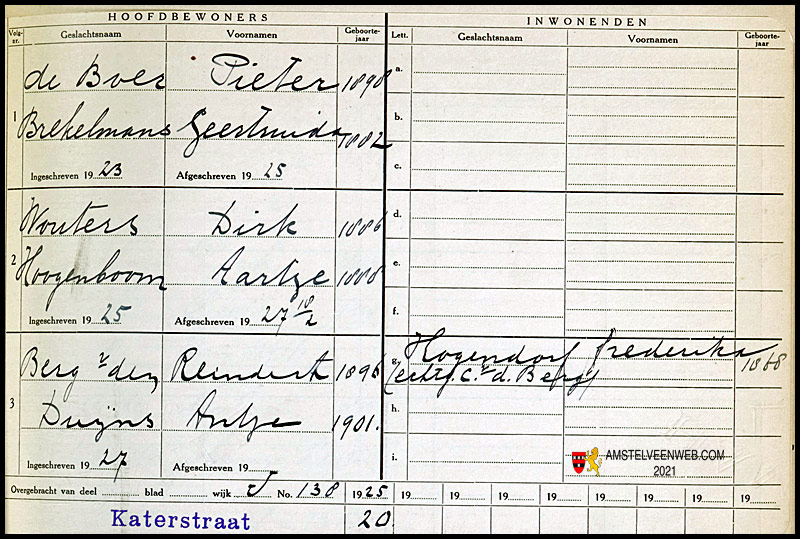 HOOFDBEWONERS INWONENDEN
Volg-nr. Geslachtsnaam Voornamen Geboorte-jaar Lett. Geslachtsnaam Voornamen Geboorte-jaar
de Boer Pieter 1898 a.
1 Brekelmans Geertruida 1882 b.
Ingeschreven 19 23 Afgeschreven 19 25 c.
Wouters Dirk 1886 d.
2 Hoogenboom Aartje 1888 e.
Ingeschreven 19 25 Afgeschreven 19 27 18/2 f.
Berg v den Reindert 1896 g. Hogendorf Frederika 1868
(echtg. C. v. d. Berg)
3 Duijns Antje 1901. h.
Ingeschreven 19 27 Afgeschreven 19 i.
AMSTELVEENWEB.COM
2021
Overgebracht van deel blad wijk J No. 138 1925 19 19 19 19 19 19 19 19
Katerstraat 20